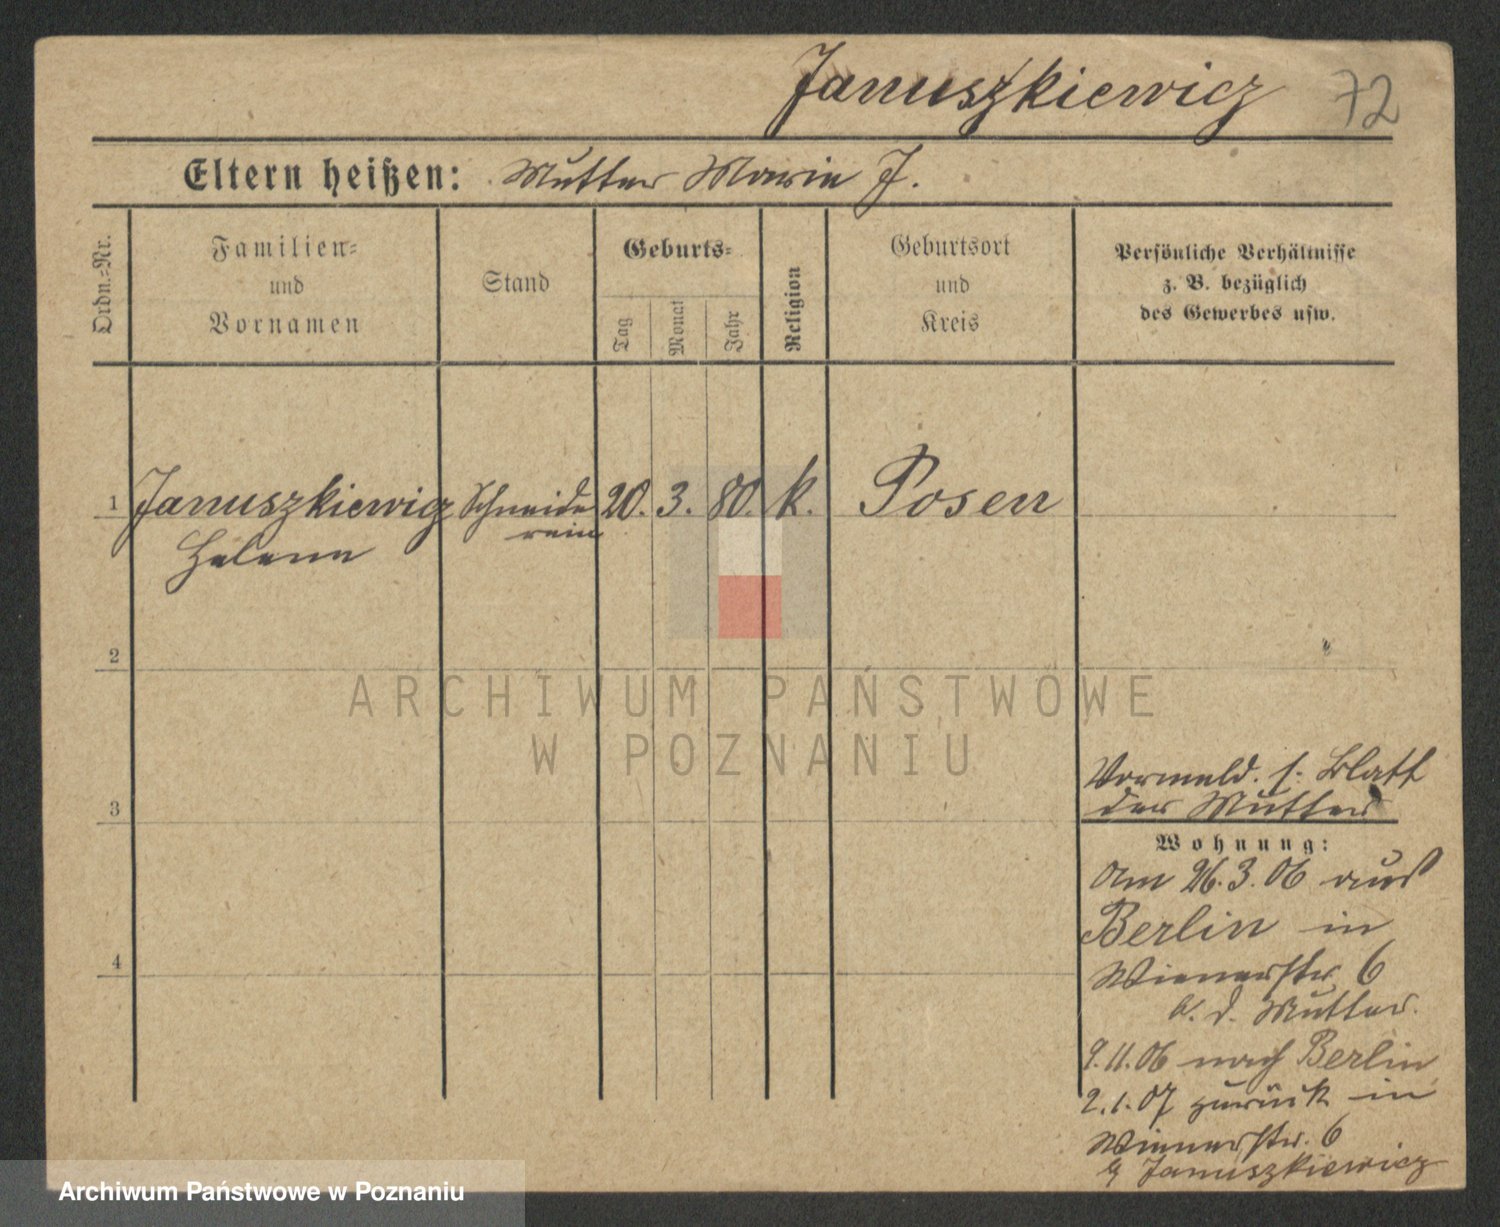 Januszkiewicz 72
Eltern heißen: Mutter Marie J.
Ordn.-Nr.
Familien-
und
Vornamen
Stand
Geburts-
Tag
Monat
Jahr
Religion
Geburtsort
und
Kreis
Persönliche Verhältnisse
z. B. bezüglich
des Gewerbes usw.
1 Januszkiewicz Schneide 20. 3. 80. k. Posen
rein
Helene
2
ARCHIWUM PAŃSTWOWE
W POZNANIU
3
Vormeld. s. Blatt
der Mutter
Wohnung:
Am 26.3.06 aus
Berlin in
Wienerstr. 6
b. d. Mutter.
4
9.11.06 nach Berlin
2.1.07 zurück in
Wienerstr. 6
Januszkiewicz
Archiwum Państwowe w Poznaniu